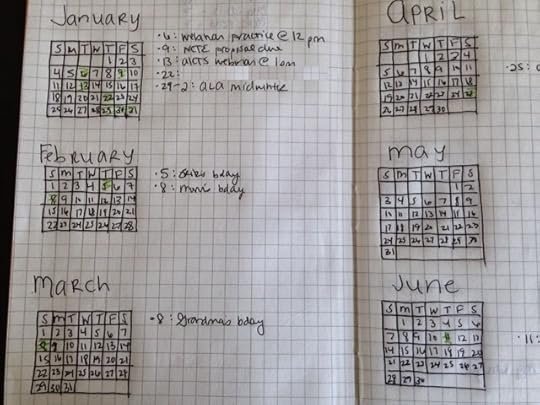 January
S M T W T F S
1 2 3
4 5 6 7 8 9 10
11 12 13 14 15 16 17
18 19 20 21 22 23 24
25 26 27 28 29 30 31
·6: webinar practice @ 12 pm
·9: NCTE proposal due
·13: AICTS webinar @ 1pm
·22:
·29-2: ALA midwinter
February
S M T W T F S
1 2 3 4 5 6 7
8 9 10 11 12 13 14
15 16 17 18 19 20 21
22 23 24 25 26 27 28
·5: bday
·8: mom's bday
March
S M T W T F S
1 2 3 4 5 6 7
8 9 10 11 12 13 14
15 16 17 18 19 20 21
22 23 24 25 26 27 28
29 30 31
·8: Grandmas bday
April
S M T W T F S
1 2 3 4
5 6 7 8 9 10 11
12 13 14 15 16 17 18
19 20 21 22 23 24 25
26 27 28 29 30
·25:
may
S M T W T F S
1 2
3 4 5 6 7 8 9
10 11 12 13 14 15 16
17 18 19 20 21 22 23
24 25 26 27 28 29 30
31
June
S M T W T F S
1 2 3 4 5 6
7 8 9 10 11 12 13
14 15 16 17 18 19 20
21 22 23 24 25 26 27
28 29 30
·11: